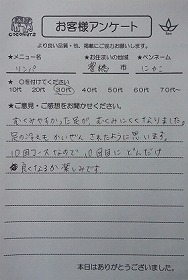 お客様アンケート
より良い品質・他、掲載にご協力お願いします。
★メニュー名 ★お住まいの地域 ★ペンネーム
リンパ 豊橋 市 にゃこ
★ ○を付けてください
10代 20代 30代 40代 50代 60代 70代
★ご意見・ご感想をお聞かせください。
むくみやすかった足が、むくみにくくなりました。
足の冷えもかいぜんされたように思います。
10回コースなので10回目にどんだけ
良くなるか楽しみです
本日はありがとうございました。